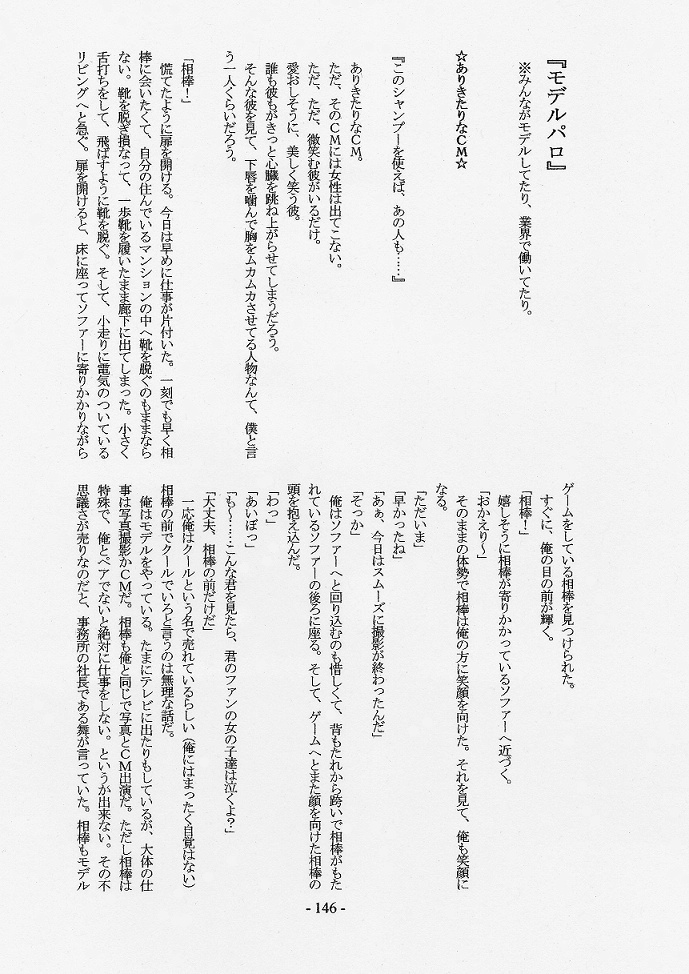 『モデルパロ』
※みんながモデルしてたり、業界で働いてたり。
☆ありきたりなＣＭ☆
『このシャンプーを使えば、あの人も……』
ありきたりなＣＭ。
ただ、そのＣＭには女性は出てこない。
ただ、ただ、微笑む彼がいるだけ。
愛おしそうに、美しく笑う彼。
誰も彼もがきっと心臓を跳ね上がらせてしまうだろう。
そんな彼を見て、下唇を噛んで胸をムカムカさせてる人物なんて、僕と言
う一人くらいだろう。
「相棒！」
慌てたように扉を開ける。今日は早めに仕事が片付いた。一刻でも早く相
棒に会いたくて、自分の住んでいるマンションの中へ靴を脱ぐのもままなら
ない。靴を脱ぎ損なって、一歩靴を履いたまま廊下に出てしまった。小さく
舌打ちをして、飛ばすように靴を脱ぐ。そして、小走りに電気のついている
リビングへと急ぐ。扉を開けると、床に座ってソファーに寄りかかりながら
ゲームをしている相棒を見つけられた。
すぐに、俺の目の前が輝く。
「相棒！」
嬉しそうに相棒が寄りかかっているソファーへ近づく。
「おかえり～」
そのままの体勢で相棒は俺の方に笑顔を向けた。それを見て、俺も笑顔に
なる。
「ただいま」
「早かったね」
「あぁ、今日はスムーズに撮影が終わったんだ」
「そっか」
俺はソファーへと回り込むのも惜しくて、背もたれから跨いで相棒がもた
れているソファーの後ろに座る。そして、ゲームへとまた顔を向けた相棒の
頭を抱え込んだ。
「わっ」
「あいぼっ」
「も～……こんな君を見たら、君のファンの女の子達は泣くよ？」
「大丈夫、相棒の前だけだ」
一応俺はクールという名で売れているらしい（俺にはまったく自覚はない）
相棒の前でクールでいろと言うのは無理な話だ。
俺はモデルをやっている。たまにテレビに出たりもしているが、大体の仕
事は写真撮影かＣＭだ。相棒も俺と同じで写真とＣＭ出演だ。ただし相棒は
特殊で、俺とペアでないと絶対に仕事をしない。というか出来ない。その不
思議さが売りなのだと、事務所の社長である舞が言っていた。相棒もモデル
- 146 -